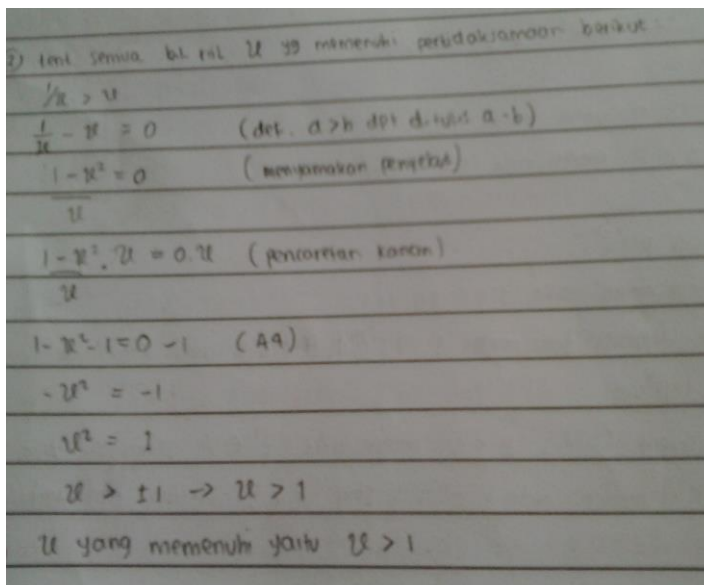 2) tent semua bil. riil x yg memenuhi pertidaksamaan berikut:
1/x > x
1/x - x = 0 (def. a>b dpt ditulis a-b)
1-x²/x = 0 (menyamakan penyebut)
1-x²/x . x = 0.x (pencoretan kanan)
1-x²-1=0-1 (A4)
-x² = -1
x² = 1
x > ±1 → x > 1
x yang memenuhi yaitu x > 1